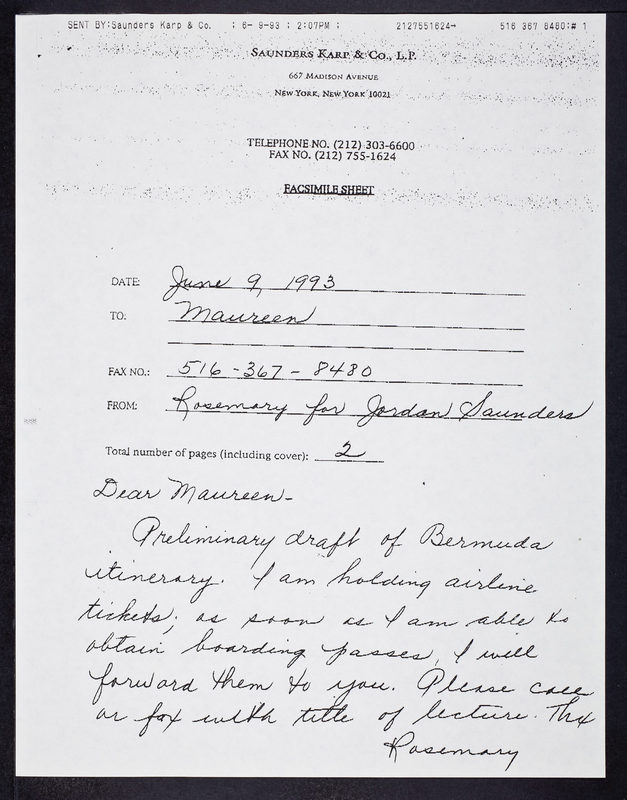 SENT BY:Saunders Karp & Co. ; 6- 9-93 ; 2:07PM ; 2127551624→ 516 367 8480;# 1
SAUNDERS KARP & CO., L.P.
667 MADISON AVENUE
NEW YORK, NEW YORK 10021
TELEPHONE NO. (212) 303-6600
FAX NO. (212) 755-1624
FACSIMILE SHEET
DATE: June 9, 1993
TO: Maureen
FAX NO.: 516-367-8480
FROM: Rosemary for Jordan Saunders
Total number of pages (including cover): 2
Dear Maureen-
Preliminary draft of Bermuda
itinerary. I am holding airline
tickets; as soon as I am able to
obtain boarding passes, I will
forward them to you. Please call
or fax with title of lecture. Thx
Rosemary